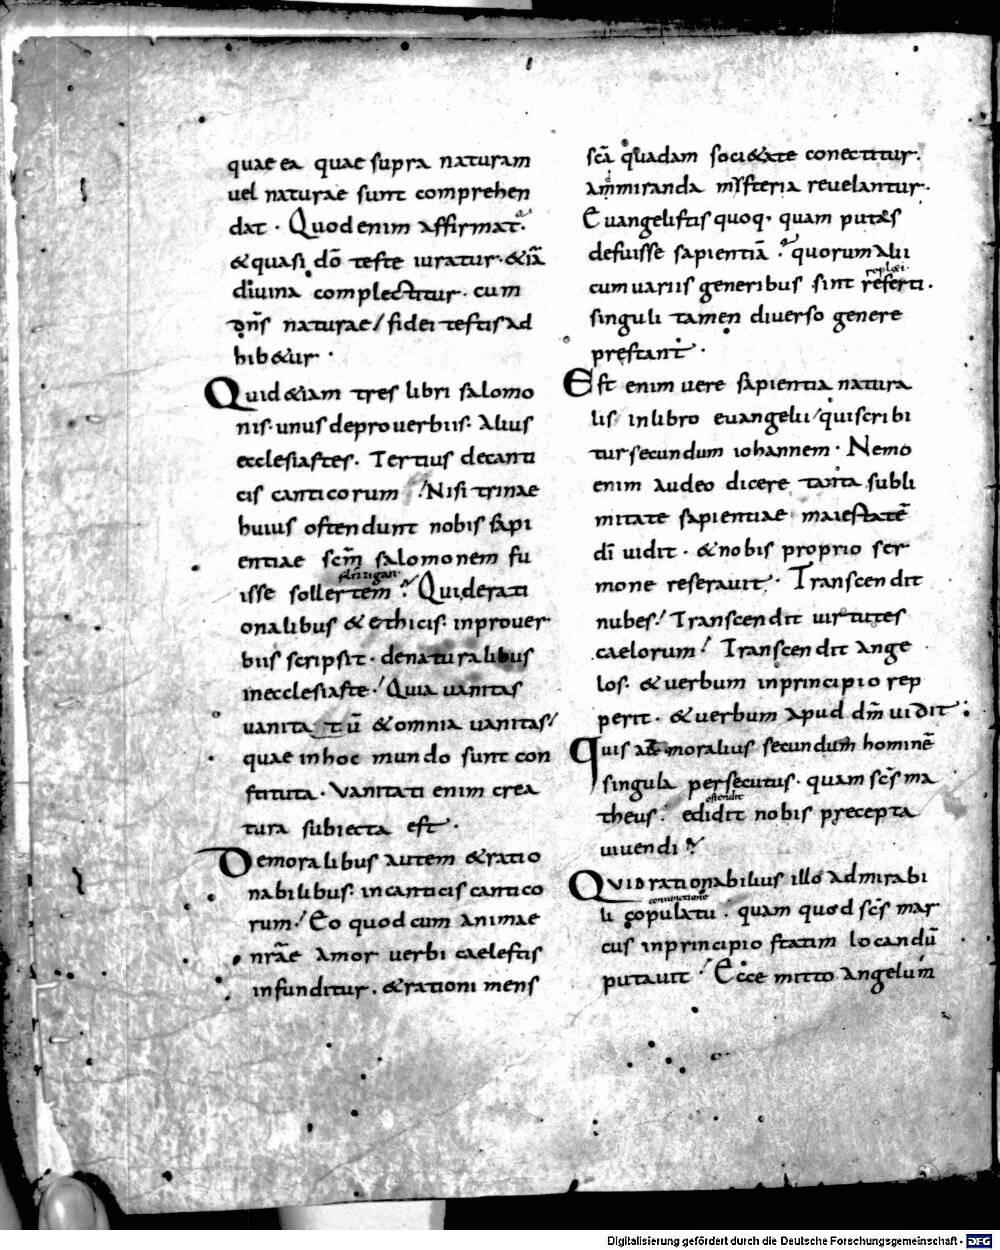 quae ea quae supra naturam
uel naturae sunt comprehen
dat · Quod enim affirmat·
&quasi dō teste iuratur· &iā
diuina complectitur· cum
dn̄s naturae / fidei testis ad
hib&ur ·
Quid &iam tres libri salomo
nis· unus deprouerbiis· Alius
ecclesiastes. Tertius decanti
cis canticorum ! Nisi trinae
huius ostendunt nobis sapi
entiae sc̄m salomonem fu
isse sollertem ? Quiderati
onalibus & ethicis· inprouer
biis scripsit · denaturalibus
inecclesiaste ! Quia uanitas
uanitatū & omnia uanitas /
quae inhoc mundo sunt con
stituta · Vanitati enim crea
tura subiecta est ·
Demoralibus autem & ratio
nabilibus· incanticis cantico
rum ! Eo quod cum animae
nr̄ae amor uerbi caelestis
infunditur . & rationi mens
sc̄a quadam soci&ate conectitur·
ammiranda mysteria reuelantur·
Euangelistis quoq· quam put&s
defuisse sapientiā ? quorum alii
cum uariis generibus sint referti ·
singuli tamen diuerso genere
prestant ·
Est enim uere sapientia natura
lis inlibro euangelii / quiscribi
tur secundum iohannem · Nemo
enim audeo dicere tanta subli
mitate sapientiae maiestatē
dī uidit · & nobis proprio ser
mone reserauit · Transcendit
nubes ! Transcendit uirtutes
caelorum ! Transcendit ange
los· & uerbum inprincipio rep
perit · & uerbum apud dm̄ uidit ·
Quis moralius secundum hominē
singula persecutus · quam sc̄s ma
theus ·
ostendit
edidit nobis precepta
uiuendi ?
Quid rationabilius illo admirabi
li
coniunctione
copulatu · quam quod sc̄s mar
cus inprincipio statim locandū
putauit ! Ecce mitto angelum
Digitalisierung gefördert durch die Deutsche Forschungsgemeinschaft - DFG